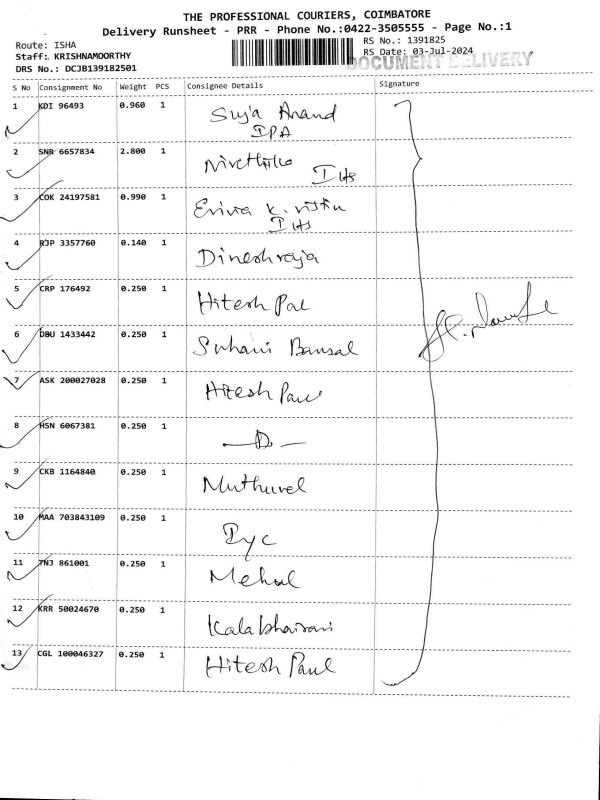 THE PROFESSIONAL COURIERS, COIMBATORE
Delivery Runsheet - PRR - Phone No.:0422-3505555 - Page No.:1
Route: ISHA
RS No.: 1391825
Staff: KRISHNAMOORTHY
RS Date: 03-Jul-2024
DRS No.: DCJB139182501
DOCUMENT DELIVERY
S No Consignment No Weight PCS Consignee Details Signature
1 KDI 96493 0.960 1 Suja Anand
IPA
2 SNR 6657834 2.800 1
IHS
3 COK 24197581 0.990 1
IHS
4 RJP 3357760 0.140 1 Dineshraja
5 CRP 176492 0.250 1 Hitesh Pal
6 DBU 1433442 0.250 1 Suhani Bansal
7 ASK 200027028 0.250 1 Hitesh Paul
8 HSN 6067381 0.250 1 —D—
9 CKB 1164840 0.250 1 Muthuvel
10 MAA 703843109 0.250 1 Iyc
11 TNJ 861001 0.250 1 Mehul
12 KRR 50024670 0.250 1 Kalabhairavi
13 CGL 100046327 0.250 1 Hitesh Paul